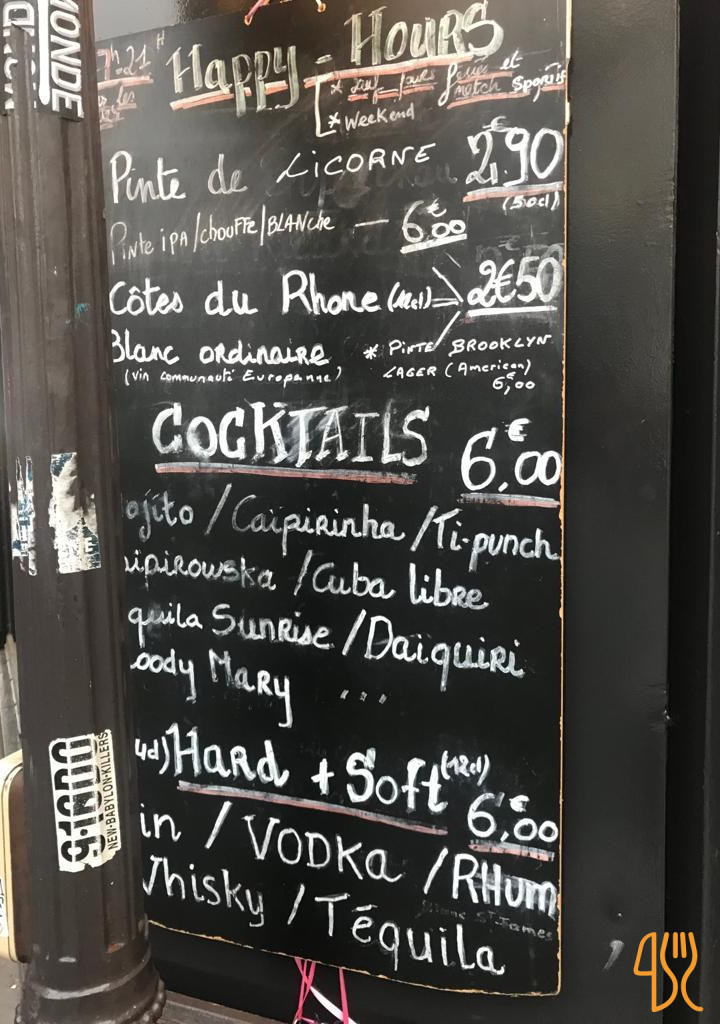 MONDE
Happy - Hours
7h-21H
* sauf jours fériés et match sportif
* Weekend
Pinte de LICORNE 2,€90
(50cl)
Pinte iPA/chouffe/BLANche — 6,€00
Côtes du Rhone 2€50
Blanc ordinaire
(Vin communauté Européenne)
* PiNTE BROOKLYN
LAGER (American)
6,€00
COCKTAILS 6,€00
ojito / Caïpirinha / Ti-punch
ipirowska / Cuba libre
quila Sunrise / Daïquiri
oody Mary ...
4cl) Hard + Soft (12cl) 6,€00
in / VODKa / RHum
Blanc St James
Whisky / Téquila
NEW-BABYLON-KILLERS